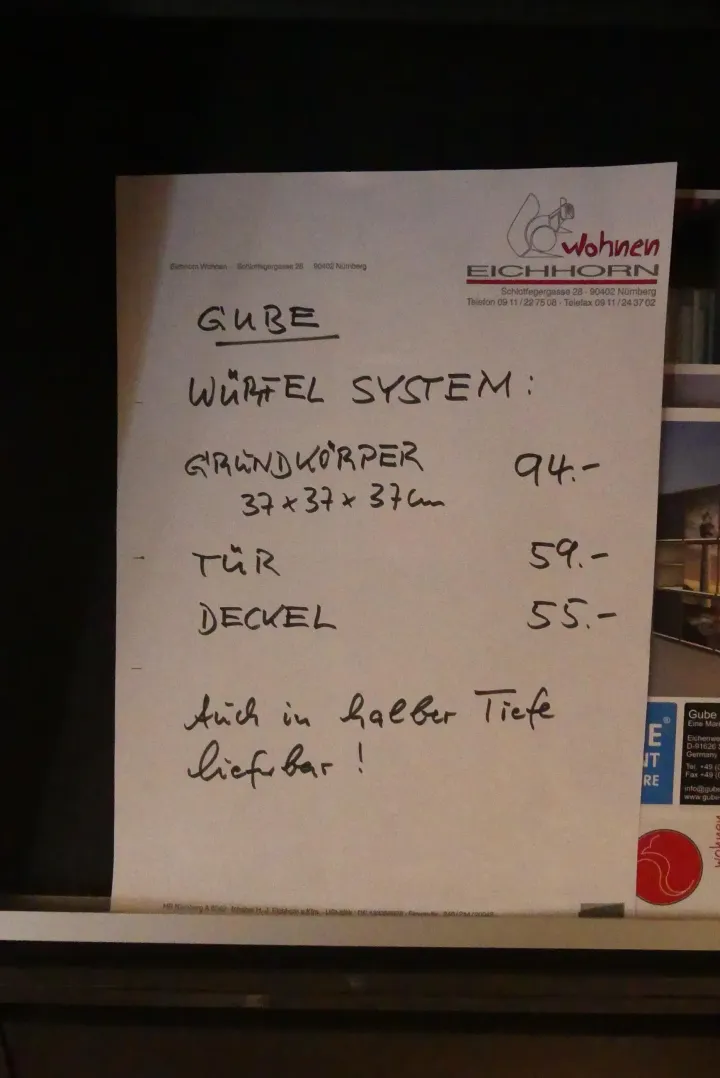 wohnen
EICHHORN
Eichhorn Wohnen Schlotfegergasse 28 90402 Nürnberg
Schlotfegergasse 28 · 90402 Nürnberg
Telefon 09 11 / 22 75 08 · Telefax 09 11 / 24 37 02
GUBE
WÜRFEL SYSTEM:
GRUNDKÖRPER 94.-
37 x 37 x 37 cm
TÜR 59.-
DECKEL 55.-
Auch in halber Tiefe
lieferbar!
E®
NT
RE
Gube
Eine Mar
D-91626
German
Tel. +49 (
Fax +49 (
info@gube
www.gube
wohnen